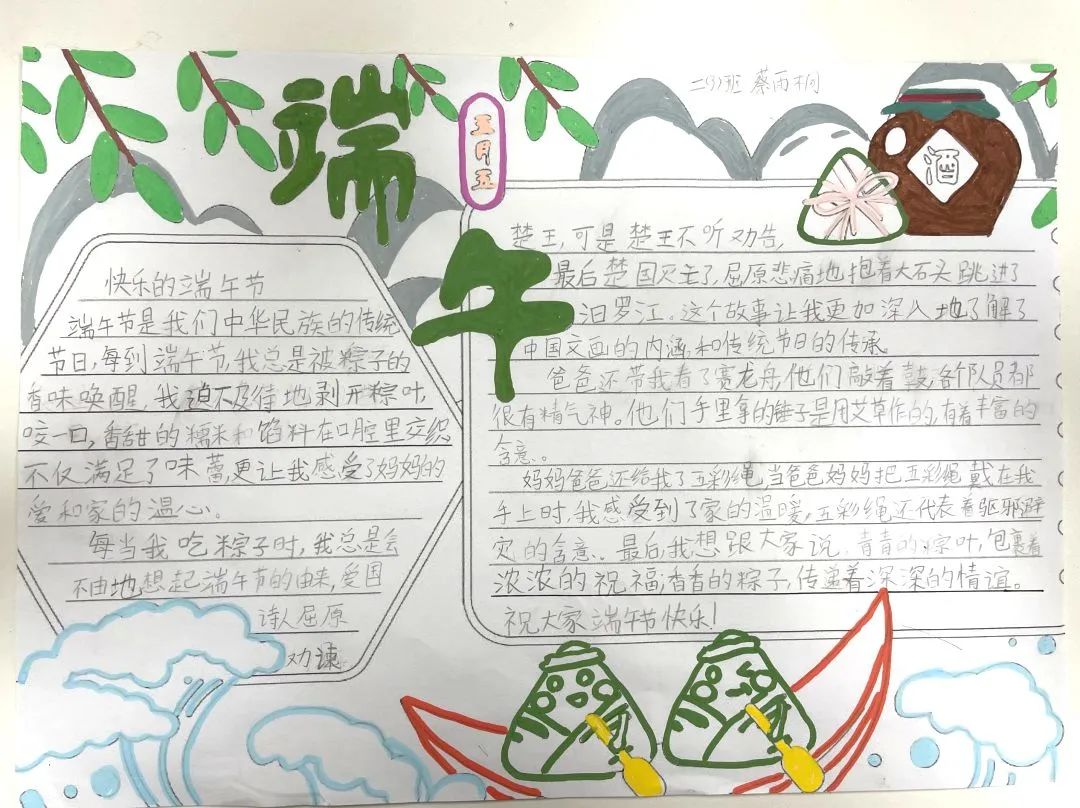 端午
五月五
二(3)班 蔡雨桐
酒
快乐的端午节
端午节是我们中华民族的传统
节日,每到端午节,我总是被粽子的
香味唤醒,我迫不及待地剥开粽叶,
咬一口,香甜的糯米和馅料在口腔里交织
不仅满足了味蕾,更让我感受了妈妈的
爱和家的温心。
每当我吃粽子时,我总是会
不由地,想起端午节的由来,爱国
诗人屈原
劝谏
楚王,可是楚王不听劝告,
最后楚国灭亡了,屈原悲痛地抱着大石头跳进了
汨罗江。这个故事让我更加深入地了解了
中国文画的内涵,和传统节日的传承
爸爸还带我看了赛龙舟,他们敲着鼓,各个队员都
很有精气神。他们手里拿的锤子是用艾草作的,有着丰富的
含意。
妈妈爸爸还给我了五彩绳,当爸爸妈妈把五彩绳戴在我
手上时,我感受到了家的温暖,五彩绳还代表着驱邪避
灾的含意。最后,我想跟大家说,青青的粽叶,包裹着
浓浓的祝福,香香的粽子,传递着深深的情谊。
祝大家端午节快乐!